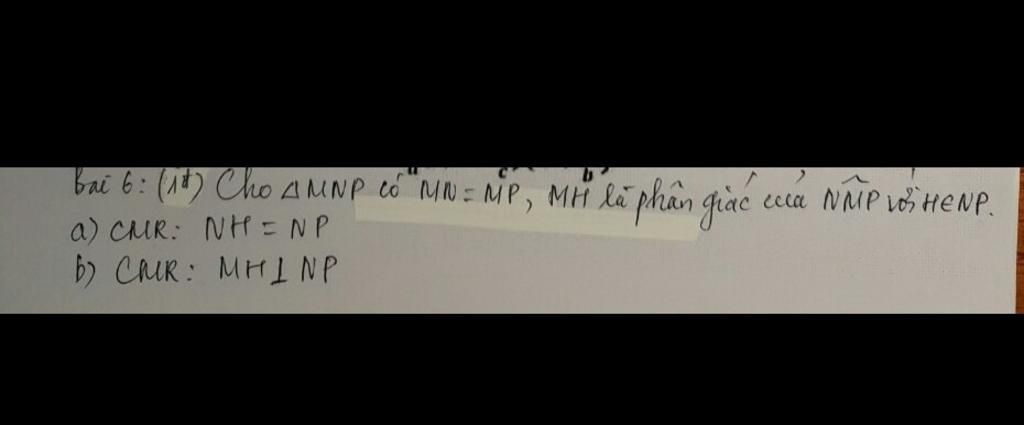 Bài 6: (1đ) Cho △MNP có MN = MP, MH là phân giác của NM̂P với H∈NP.
a) CMR: NH = NP
b) CMR: MH⊥NP